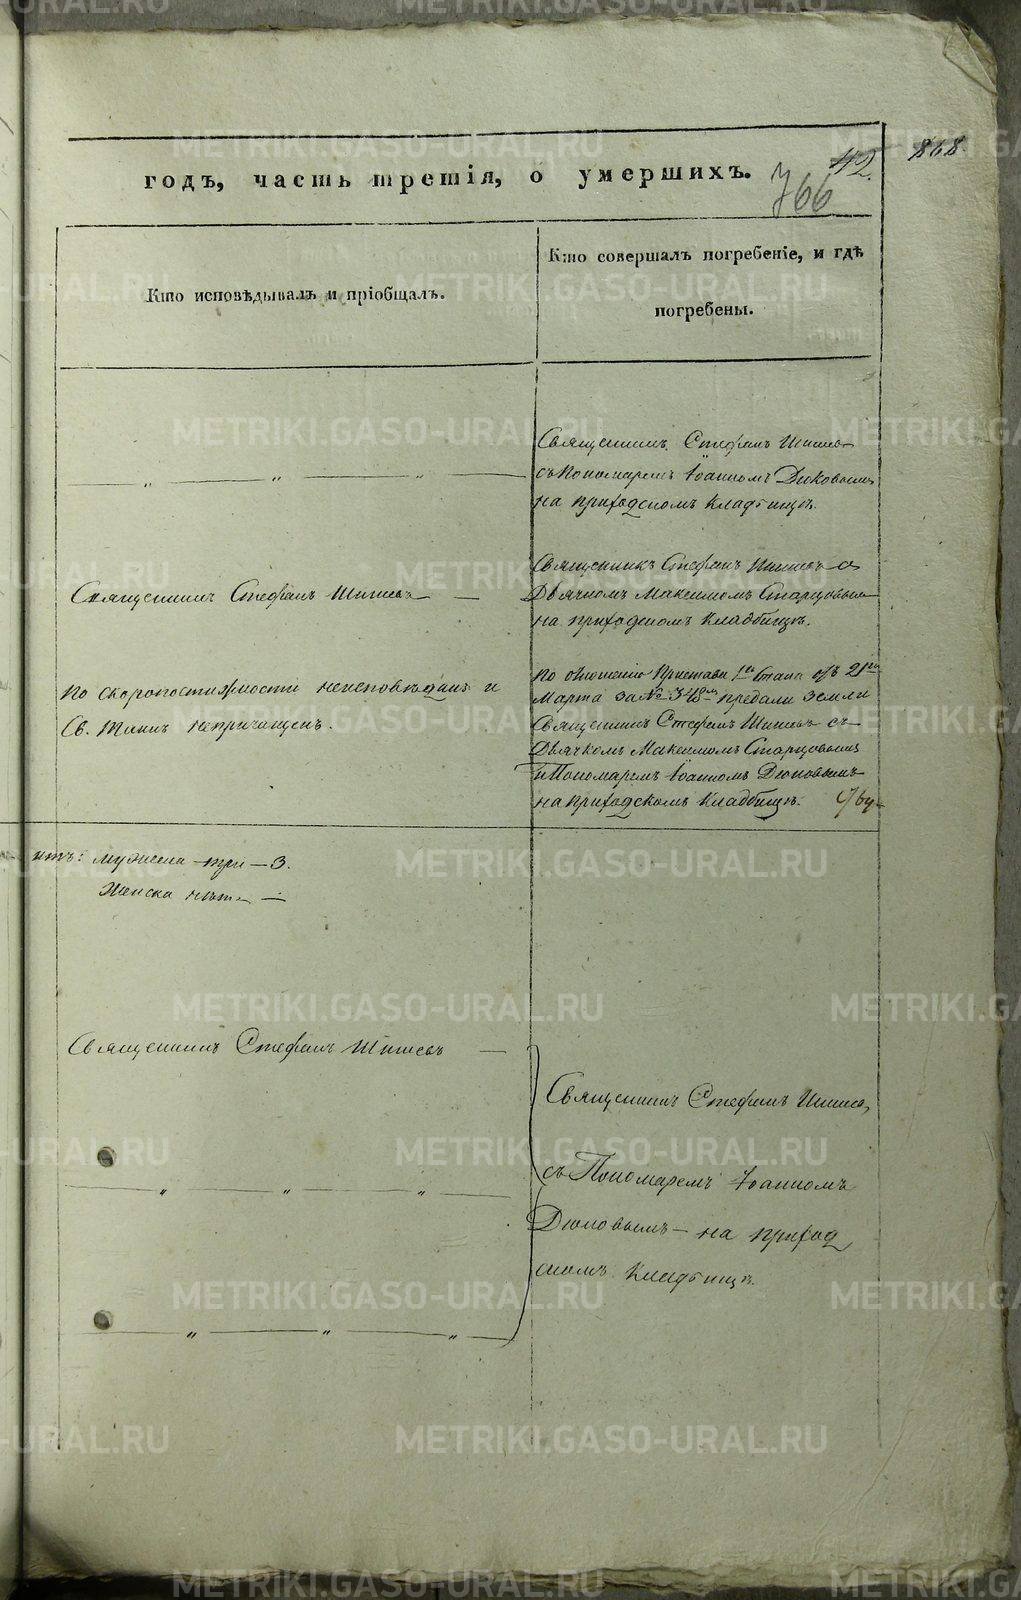 годъ, часть третія, о умершихъ.
42.
868
766
Кто исповѣдывалъ и пріобщалъ.
Кто совершалъ погребеніе, и гдѣ
погребены.
Священникъ Стефанъ
съ Пономаремъ Іоанномъ
на приходскомъ кладбищѣ.
Священникъ Стефанъ
Священникъ Стефанъ с
Дьячкомъ Максимомъ Старцовымъ
на приходскомъ кладбищѣ.
по скоропостижности неисповѣданъ и
Св. Таинъ непричащенъ.
по отношенію Пристава 1го Стана отъ 21го
Марта за № 348м предали земли
Священникъ Стефанъ съ
Дьячкомъ Максимомъ Старцовымъ
и Пономаремъ Іоанномъ Дюковымъ
на приходскомъ кладбищѣ.
мужеска три — 3.
Женска нѣтъ —
Священникъ Стефанъ
Священникъ Стефанъ
съ Пономаремъ Іоанномъ
Дюковымъ — на приход
скомъ кладбищѣ.
METRIKI.GASO-URAL.RU